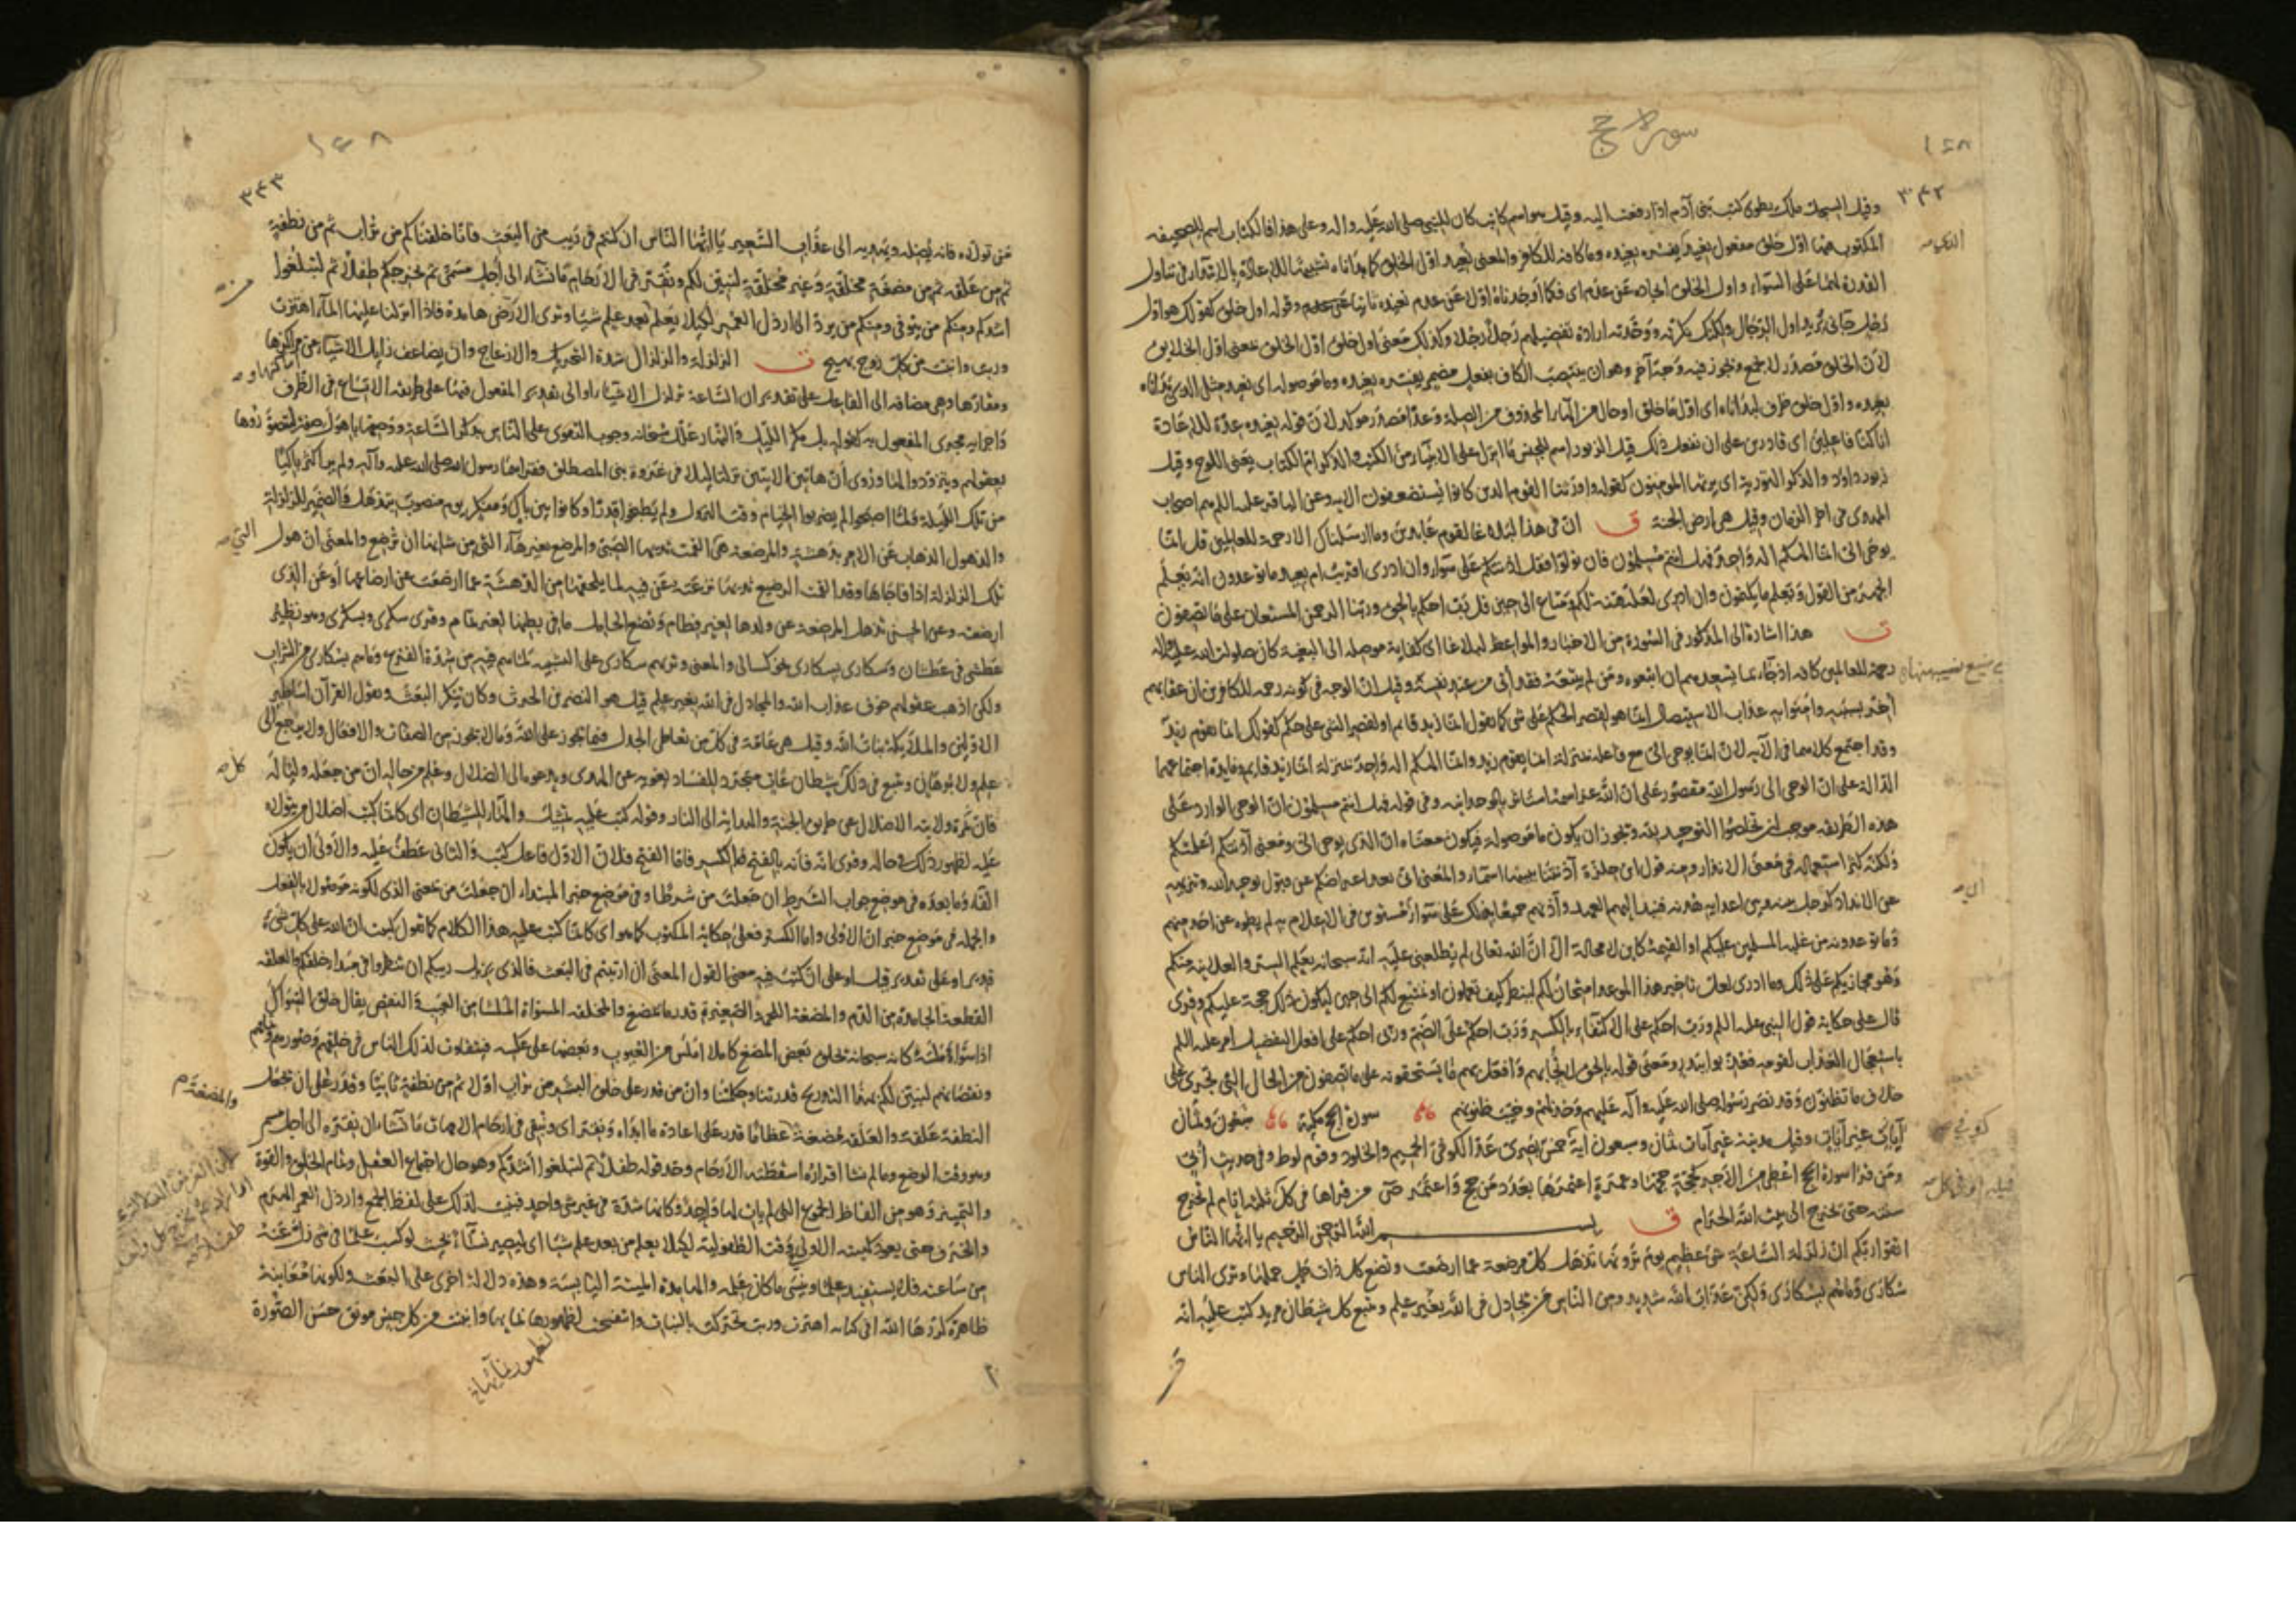 سورة حج
١٤٨
٣٤٢
وقيل السجل ملك يطوى كتب بنى آدم اذا رفعت اليه وقيل هو اسم كاتب كان للنبى صلى الله عليه واله وعلى هذا فالكتاب اسم للصحيفه
المكتوب فيها اول خلق مفعول نعيد يفسره نعيده وما كافه للكاف والمعنى نعيد اول الخلق كما بداناه تشبيها للاعادة بالابتداء فى تناول
القدرة لهما على السواء واول الخلق ايجاده عن عدم اى فكما اوجدناه اولا عن عدم نعيده ثانيا عن عدم وقوله اول خلق كقولك هو اول
رجل جاءنى تريد اول الرجال ولكنك نكرته ووحدته ارادة تفضيلهم رجلا رجلا وكذلك معنى اول خلق اول الخلق بمعنى اول الخلايق
لان الخلق مصدر لا يجمع ويجوز فيه وجه آخر وهو ان ينتصب الكاف بفعل مضمر يفسره نعيده وما موصولة اى نعيد مثل الذى بداناه
نعيده واول خلق ظرف لبداناه اى اول ما خلق او حال من الهاء المحذوف من الصلة وعدا مصدر موكد لان قوله نعيده عدة للاعادة
انا كنا فاعلين اى قادرين على ان نفعل ذلك قيل الزبور اسم لجنس ما انزل على الانبياء من الكتب والذكر ام الكتاب يعنى اللوح وقيل
زبور داود والذكر التورية اى يرثها المومنون كقوله واورثنا القوم الذين كانوا يستضعفون الايه وعن الباقر عليه السلم هم اصحاب
المهدى فى اخر الزمان وقيل هى ارض الجنة ق ان فى هذا لبلاغا لقوم عابدين وما ارسلناك الا رحمة للعالمين قل انما
يوحى الى انما الهكم اله واحد فهل انتم مسلمون فان تولوا فقل اذنتكم على سواء وان ادرى اقريب ام بعيد ما توعدون انه يعلم
الجهر من القول ويعلم ما تكتمون وان ادرى لعله فتنة لكم ومتاع الى حين قل رب احكم بالحق وربنا الرحمن المستعان على ما تصفون
ت هذا اشارة الى المذكور فى السورة من الاخبار والمواعظ لبلاغا اى كفاية موصلة الى البغية كان صلوات الله عليه واله
رحمة للعالمين كافه اذ جاء بما يسعدهم ان اتبعوه ومن لم يتبعه فقد أتى من عند نفسه وقيل ان الوجه فى كونه رحمه للكافرين ان عقابهم
أخر بسببه وأمنوا به عذاب الاستيصال انما هو لقصر الحكم على شى كما تقول انما زيد قايم او لقصر الشى على حكم كقولك انما يقوم زيد
وقد اجتمع كلاهما فى الآية لان انما يوحى الى مع فاعله بمنزلة انما يقوم زيد وانما الهكم اله واحد بمنزلة انما زيد قايم وفايدة اجتماعهما
الدلالة على ان الوحى الى رسول الله مقصور على ان الله عز اسمه استاثر بالوحدانيه وفى قوله فهل انتم مسلمون ان الوحى الوارد على
هذه الطريقه موجب ان تخلصوا التوحيد لله ويجوز ان يكون ما موصولة فيكون معناه ان الذى يوحى الى ومعنى آذنتكم اعلمتكم
ولكنه كثر استعماله فى معنى الانذار ومنه قول ابن حلزة آذنتنا ببينها اسماء والمعنى انى بعد اعراضكم عن قبول توحيد الله وتنزيهه
عن الانداد كرجل بينه وبين اعدايه هدنه فنبذ اليهم العهد وآذنهم جميعا بذلك على سواء مستوين فى الاعلام به لم يطوه عن احد منهم
وما توعدونه من غلبه المسلمين عليكم او القيمة كاين لا محالة الا ان الله تعالى لم يطلعنى عليه انه سبحانه يعلم السر والعلانيه منكم
وهو مجازيكم على ذلك وما ادرى لعل تاخير هذا الموعد امتحان لكم لينظر كيف تعملون او تمتيع لكم الى حين ليكون ذلك حجة عليكم وقرى
قال على حكاية قول النبى عليه السلم ورب احكم على الاكتفاء بالكسر ورب احكم على الضم وربى احكم على افعل التفضيل امر عليه السلم
باستعجال العذاب لقومه فعذبوا ببدر ومعنى قوله بالحق لا تحابهم وافعل بهم ما يستحقونه على ما تصفون من الحال التى تجرى على
خلاف ما تظنون وقد نصر رسوله صلى الله عليه وآله عليهم وخذلهم وخيب ظنونهم سورة الحج مكية سبعون وثمان
آيات غير آيات وقيل مدينة غير آيات ثمان وسبعون اية خمس بصرى عد الكوفى الحميم والجلود وقوم لوط وفى حديث أبىّ
ومن قرأ سورة الحج اعطى من الاجر كحجة حجها وعمرة اعتمرها بعدد من حج واعتمر ص من قراها فى كل ثلثة ايام لم تخرج
سنته حتى يخرج الى بيت الله الحرام ق بسم الله الرحمن الرحيم يا ايها الناس
اتقوا ربكم ان زلزلة الساعة شئ عظيم يوم ترونها تذهل كل مرضعة عما ارضعت وتضع كل ذات حمل حملها وترى الناس
سكارى وما هم بسكارى ولكن عذاب الله شديد ومن الناس من يجادل فى الله بغير علم ويتبع كل شيطان مريد كتب عليه انه
١٤٨
٣٤٣
من تولاه فانه يضله ويهديه الى عذاب السعير يا ايها الناس ان كنتم فى ريب من البعث فانا خلقناكم من تراب ثم من نطفة
ثم من علقة ثم من مضغة مخلقة وغير مخلقة لنبين لكم ونقر فى الارحام ما نشاء الى أجل مسمى ثم نخرجكم طفلا ثم لتبلغوا
اشدكم ومنكم من يتوفى ومنكم من يرد الى ارذل العمر لكيلا يعلم بعد علم شيا وترى الارض هامدة فاذا انزلنا عليها الماء اهتزت
وربت وانبتت من كل زوج بهيج ت الزلزلة والزلزال شدة التحريك والازعاج وان يضاعف زليل الاشياء عن مراكزها
ومقارها وهى مضافه الى الفاعل على تقدير ان الساعة تزلزل الاشياء او الى تقدير المفعول فيها على طريقه الاتساع فى الظرف
واجرايه مجرى المفعول به كقوله بل مكر الليل والنهار علل سبحانه وجوب التقوى على الناس بذكر الساعة ووصفها باهول صفة ليتصوروها
بعقولهم ويتزودوا لها وروى أن هاتين الايتين نزلتا ليلا فى غزوة بنى المصطلق فقراهما رسول الله صلى الله عليه وآله ولم ير اكثر باكيا
من تلك الليلة فلما اصبحوا لم يضربوا الخيام وقت النزول ولم يطبخوا قدرا وكانوا بين باك ومفكر يوم منصوب بتذهل والضمير للزلزلة
والذهول الذهاب عن الامر بدهشة والمرضعة هى القمت ثديها الصبى والمرضع بغير هاء التى من شانها ان ترضع والمعنى ان هول
تلك الزلزلة اذا فاجاها وقد القمت الرضيع ثديها نزعته عن فيه لما يلحقها من الدهشة عما ارضعت عن ارضاعها أو عن الذى
ارضعته وعن الحسن تذهل المرضعة عن ولدها لغير فطام وتضع الحامل ما فى بطنها لغير تمام وقرى سكرى وبسكرى وهو نظير
عطشى فى عطشان وسكارى بسكارى نحو كسالى والمعنى وتريهم سكارى على التشبيه لما هم فيه من شدة الفزع وما هم بسكارى من الشراب
ولكن اذهب عقولهم خوف عذاب الله والمجادل فى الله بغير علم قيل هو النضر بن الحرث وكان ينكر البعث ويقول القرآن اساطير
الاولين والملائكة بنات الله وقيل هى عامة فى كل من تعاطى الجدل فيما يجوز على الله وما لا يجوز من الصفات والافعال ولا يرجع الى
علم ولا برهان ويتبع فى ذلك شيطان عات متجرد للفساد يغويه عن الهدى ويدعوه الى الضلال وعلم من حاله ان من جعله وليا له
فان ثمرة ولايته الاضلال عن طريق الجنة والهدايه الى النار وقوله كتب عليه تمثيل والهاء للشيطان اى كانما كتب اضلال من يتولاه
عليه لظهور ذلك فى حاله وقرى انه فانه بالفتح والكسر فاما الفتح فلان الاول فاعل كتب والثانى عطف عليه والاولى ان يكون
الفاء وما بعده فى موضع جواب الشرط ان جعلت من شرطا وفى موضع خبر المبتدا ان جعلت من بمعنى الذى لكونه موصولا بالفعل
والجملة فى موضع خبر ان الاولى واما الكسر فعلى حكاية المكتوب كما هو اى كانما كتب عليه هذا الكلام كما تقول كتبت ان الله على كل شئ
قدير او على تقدير قيل او على ان كتب فيه معنى القول المعنى ان ارتبتم فى البعث فالذى يزيل ريبكم ان تنظروا فى مبدا خلقكم والعلقه
القطعة الجامدة من الدم والمضغة اللحمه الصغيرة قدر ما يمضغ والمخلقه المسواة الملسا من العيب والنقص يقال خلق السواك
اذا سواه وملسه كانه سبحانه خلق بعض المضغ كاملا املس من العيوب وبعضها على عكسه فيتفاوت لذلك الناس فى خلقهم وصورهم وتمامهم
ونقصانهم لنبين لكم بهذا التدريج قدرتنا وحكمتنا وان من قدر على خلق البشر من تراب اولا ثم من نطفة ثانيا وقدر على ان يجعل
النطفة علقة والعلقة مضغة عظاما قدر على اعادة ما ابداه ونقر اى ونبقى فى ارحام الامهات ما نشاء ان نقره الى اجل مسمى
وهو وقت الوضع وما لم نشا اقراره اسقطته الارحام وحد قوله طفلا ثم لتبلغوا اشدكم وهو حال اجتماع العقل وتمام الخلق والقوة
والتمييز وهو من الفاظ الجموع التى لم يات لها واحد وكانها شدة فى غير شى واحد فبنيت لذلك على لفظ الجمع وارذل العمر الهرم
والخرف حتى يعود كهيئته الاولى وقت الطفولية لكيلا يعلم من بعد علم شيا اى ليصير نساء بحيث لو كسب علما فى شى زل عنه
من ساعته فلا يستفيد علما وينسى ما كان علمه والهامدة الميتة اليابسة وهذه دلالة اخرى على البعث ولكونها معاينة
ظاهرة كررها الله فى كتابه اهتزت وربت تحركت بالنبات وانتفخت لظهور نمايها وانبتت من كل جنس مونق حسن الصورة
لظهور نمائها